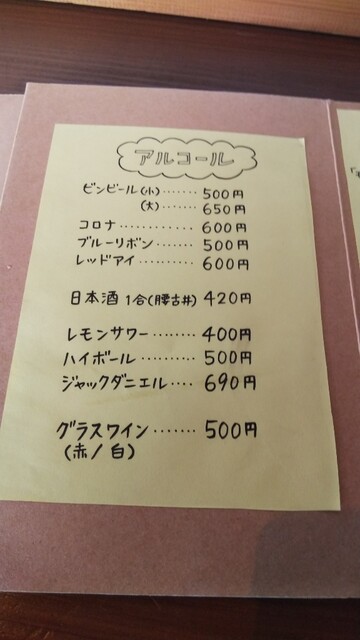 アルコール
ビンビール(小)・・・・・・・500円
(大)・・・650円
コロナ・・・・・・・・・・・・600円
ブルーリボン・・・・・500円
レッドアイ・・・・・・・・・・600円
日本酒 1合(腰古井) 420円
レモンサワー・・・・・・・・400円
ハイボール・・・・・・・・・500円
ジャックダニエル・・・・690円
グラスワイン・・・・・・・500円
(赤/白)